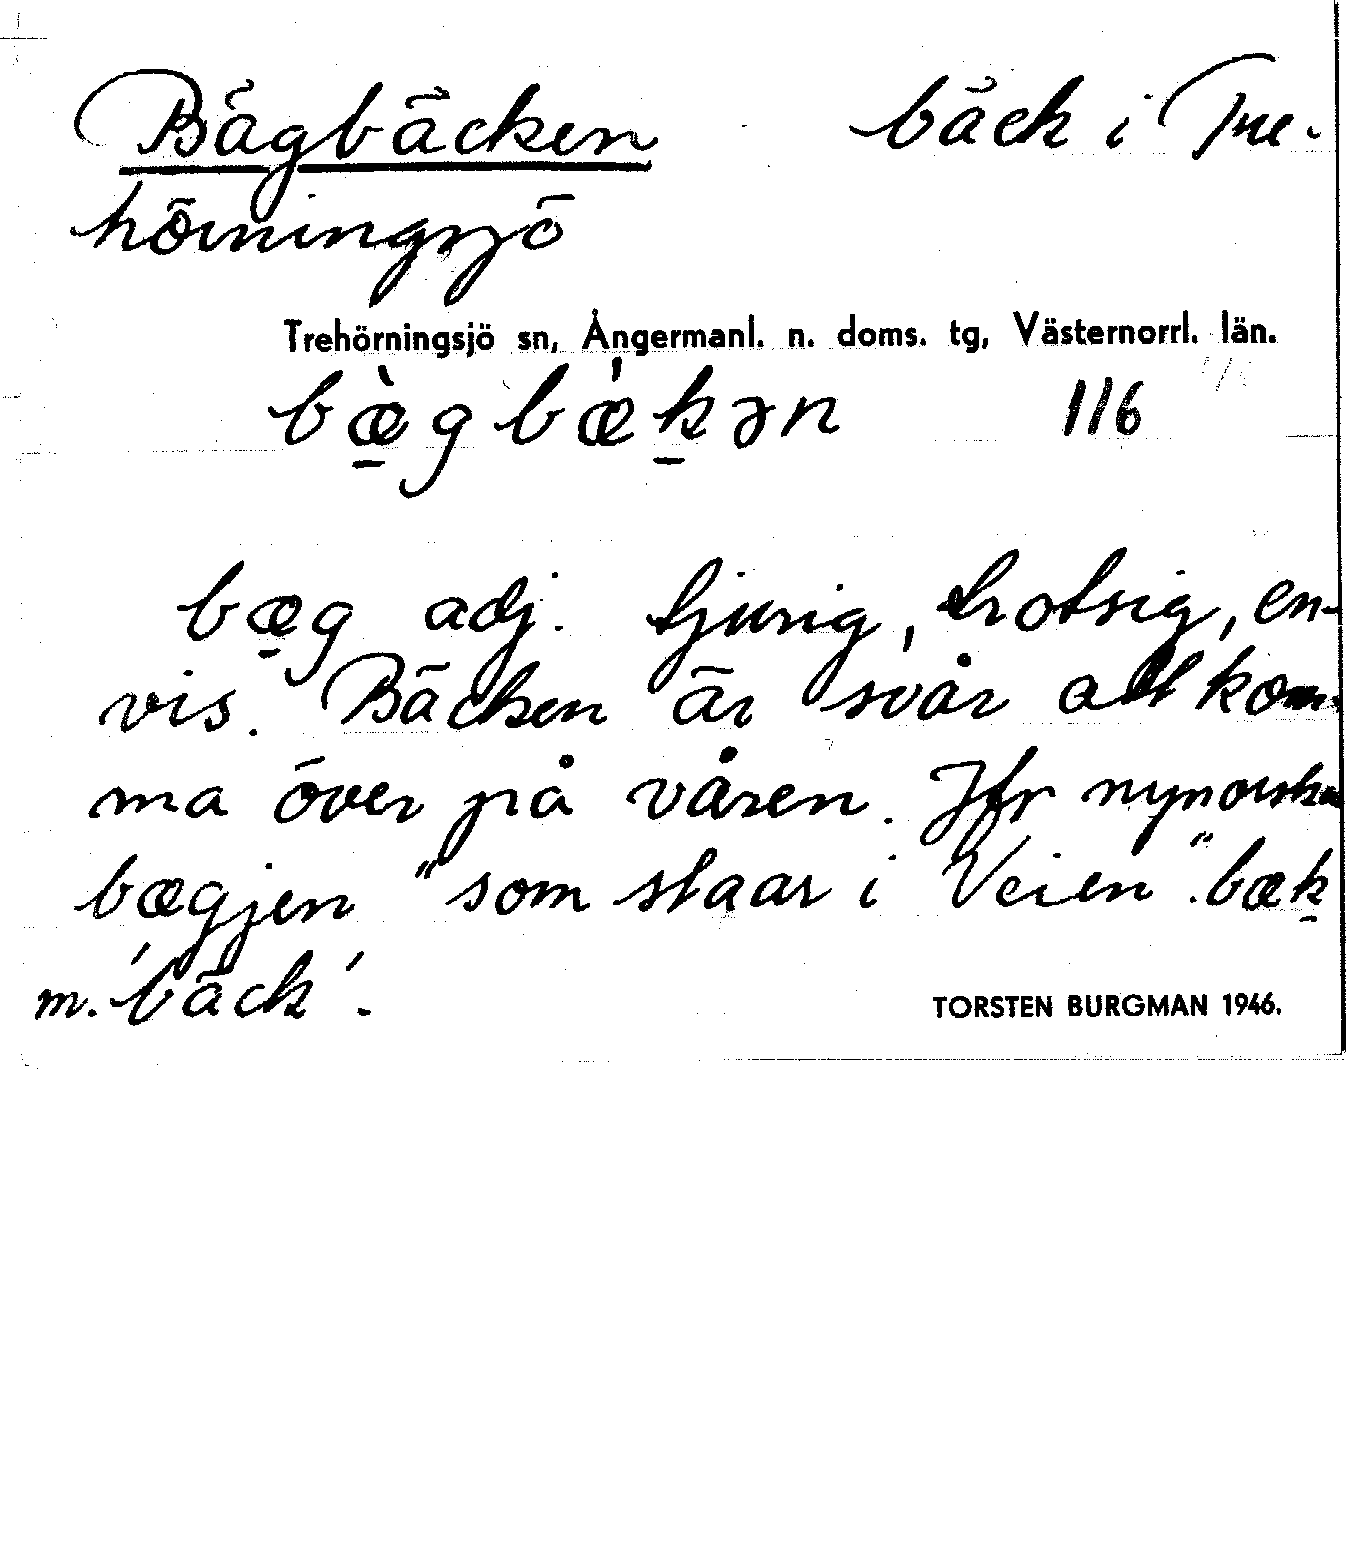 Bägbäcken bäck i Tre-
hörningsjö
Trehörningsjö sn, Ångermanl. n. doms. tg, Västernorrl. län.
bæ̠̀gbæ̀k̠ən 116
bæ̠g adj. tjurig, trotsig, en-
vis. Bäcken är svår att kom-
ma över på våren. Jfr nynorska
bægjen "som staar i Veien". bæk̠
m. 'bäck'.
TORSTEN BURGMAN 1946.